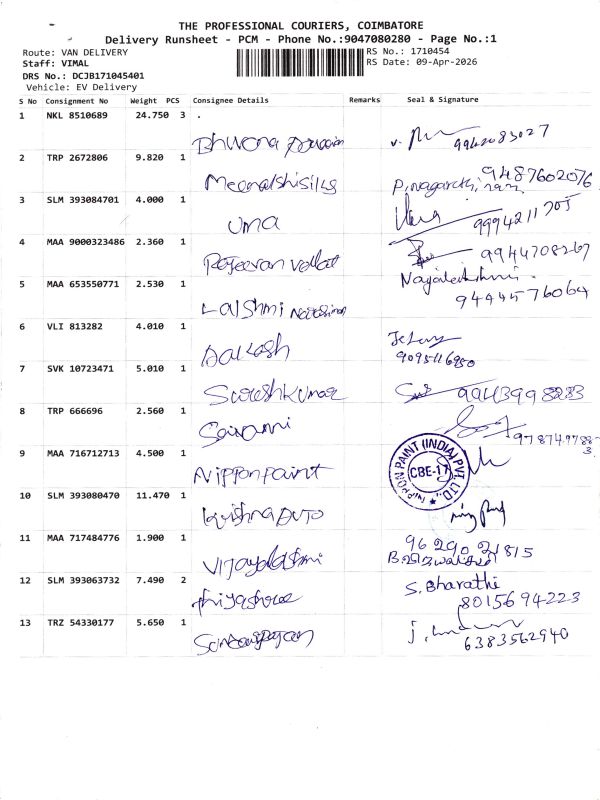 THE PROFESSIONAL COURIERS, COIMBATORE
Delivery Runsheet - PCM - Phone No.:9047080280 - Page No.:1
Route: VAN DELIVERY
RS No.: 1710454
Staff: VIMAL
RS Date: 09-Apr-2026
DRS No.: DCJB171045401
Vehicle: EV Delivery
S No Consignment No Weight PCS Consignee Details Remarks Seal & Signature
1 NKL 8510689 24.750 3 .
Bhuvana
2 TRP 2672806 9.820 1
Meenatshisilks 9487602076
3 SLM 393084701 4.000 1
uma
4 MAA 9000323486 2.360 1
9944708267
5 MAA 653550771 2.530 1
Lalshmi 9444576064
6 VLI 813282 4.010 1
Aakash 9095116950
7 SVK 10723471 5.010 1
Sureshkumar
8 TRP 666696 2.560 1
9 MAA 716712713 4.500 1
Nipponpaint
NIPPON PAINT (INDIA) PVT. LTD.
CBE-17
10 SLM 393080470 11.470 1
Krishna Auto
11 MAA 717484776 1.900 1
Vijayalashmi 96290 21815
12 SLM 393063732 7.490 2
S. Bharathi
8015694223
13 TRZ 54330177 5.650 1
6383562940